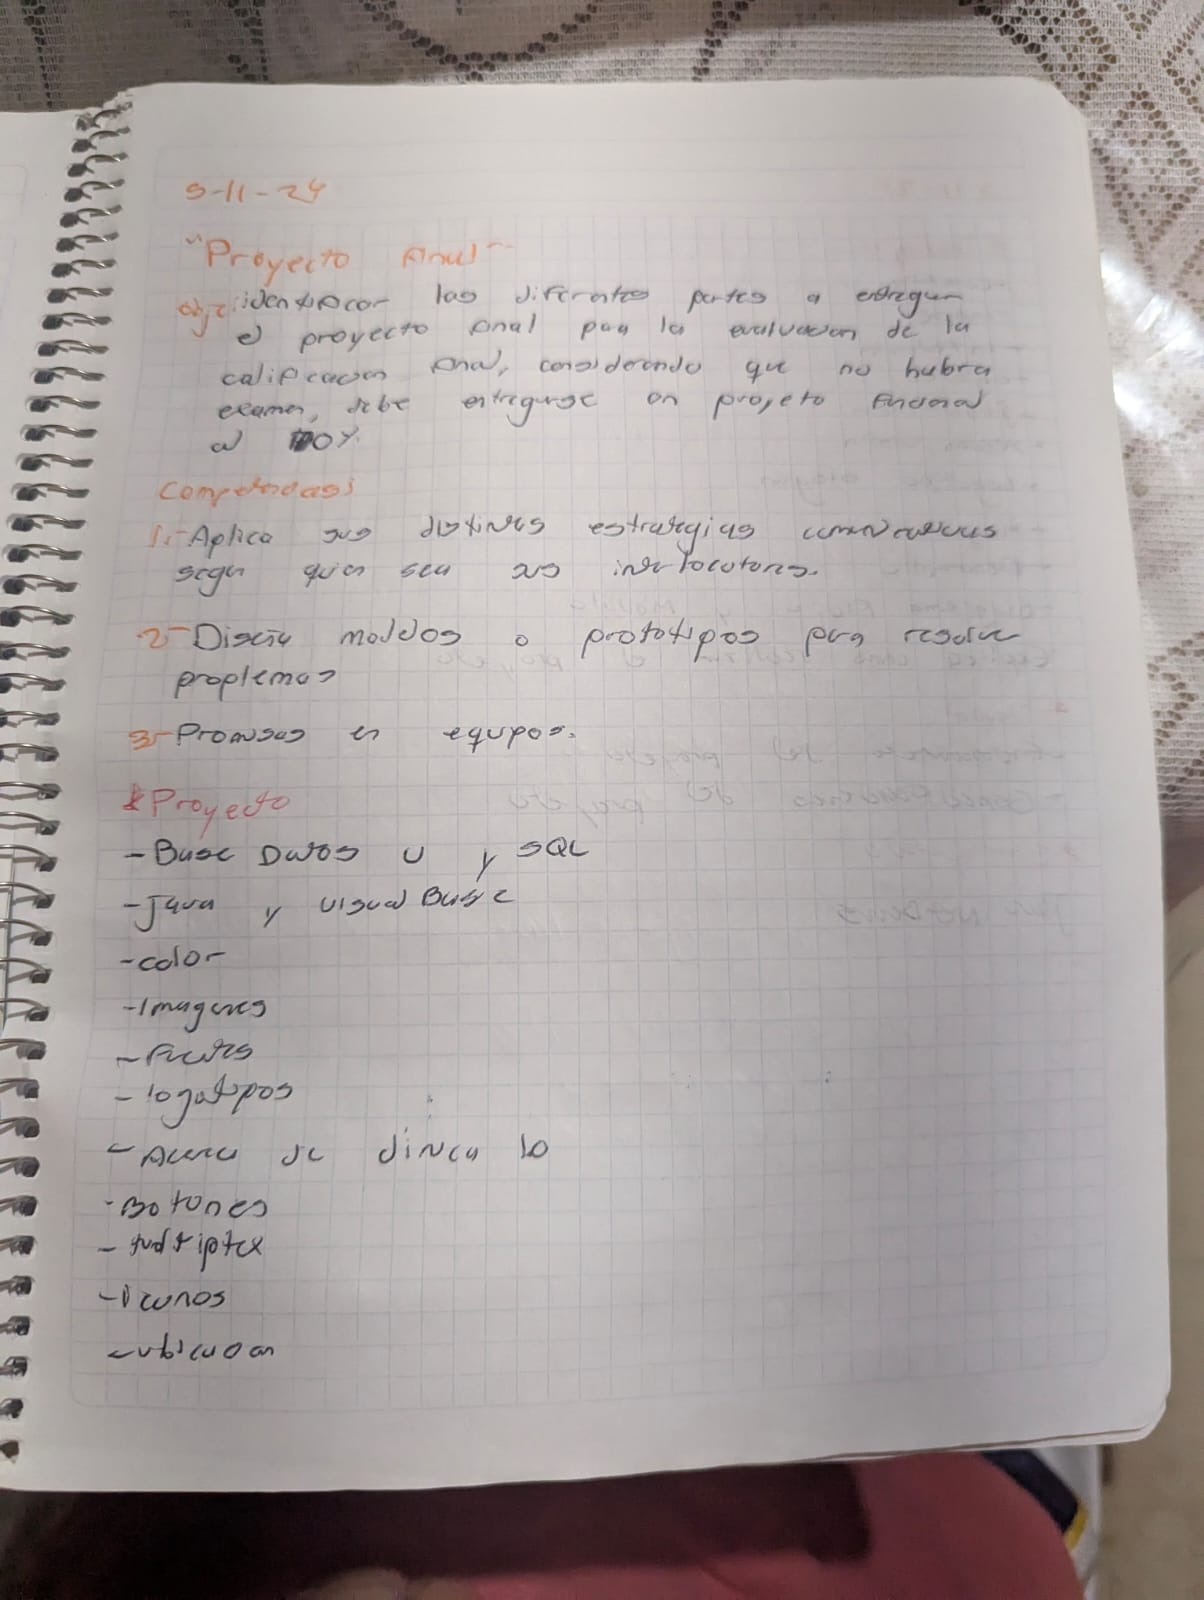 5-11-24
"Proyecto Final"
obje: identificar las diferentes partes a entregar
el proyecto final para la evaluacion de la
calificacion final, considerando que no habra
examen, debe entregarse un proyeto funcional
al
Competencias:
1.- Aplica sus distintas estrategias comunicativas
segun quien sea sus interlocutores.
2- Diseña modelos o prototipos para resolver
proplemas
3- en equipos.
Proyecto
- Base Datos U y SQL
- Java y visual Basic
- color
- Imagenes
- Fuentes
- logotipos
- Acerca de
- Botones
-
- Iconos
- ubicacion